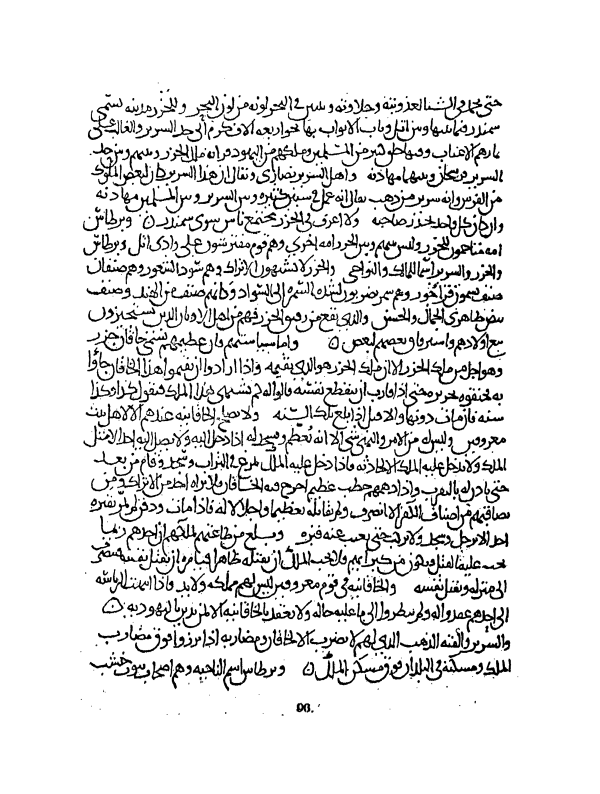 حتى يحمل في الشتا لعذوبته وحلاوته وسن في البحر لونه من لون البحر وللخزر مدينه تسمى
سمندر فيما بينها وبين اتل وباب الابواب بها بساتين كثيره الى حد السرير والغالب على
ثمارهم الاعناب وفيها خلق كثير من المسلمين وملكهم من اليهود قرابه ملك الخزر وبينهم وبين حد
السرير وبينها مهادنه واهل السرير نصارى ويقال ان هذا السرير كان لبعض الملوك
من الفرس وانه سرير من ذهب يقال انه عمل في سنين كثيره وبين السرير وبين المسلمين مهادنه
وان كان كل واحد يحذر صاحبه ولا اعرف في الخزر مجتمع ناس سوى سمندر وبرطاس
امه متاخمون للخزر وليس بينهم وبين الخزر امه اخرى وهم قوم مفترشون على وادى اتل وبرطاس
والخزر والسرير اسم للممالك والنواحى والخزر لا يشبهون الاتراك وهم سود الشعور وهم صنفان
صنف يسمون قراخزر وهم سمر يضربون لشده السمره الى السواد كانهم صنف من الهند وصنف
بيض ظاهرى الجمال والحسن والذى يقع من رقيق الخزر فهم من اهل الاوثان الذين يستجيزون
بيع اولادهم واسترقاق بعضهم لبعض واما سياستهم فان عظيمهم يسمى خاقان خزر
وهو اجل من ملك الخزر الا ان ملك الخزر هو الذى يقيمه واذا ارادوا ان يقيموا هذا الخاقان جاوا
به فخنقوه بحريره حتى اذا قارب ان ينقطع نفسه قالوا له كم تشتهى مده الملك فيقول كذا وكذا
سنه فان مات دونها والا قتل اذا بلغ تلك السنه ولا تصلح الخاقانيه عندهم الا لاهل بيت
معروفين وليس له من الامر والنهى شى الا انه يعظم ويسجد له اذا دخل اليه ولا يصل اليه احد الا مثل
الملك ولا يدخل عليه الملك الا لحادثه فاذا دخل عليه الملك تمرغ فى التراب وسجد وقام من بعد
حتى ياذن له بالتقرب واذا دهمهم خطب عظيم اخرج فيه الخاقان فلا يراه احد من الاتراك ومن
يصاقبهم من اصناف الكفر الا انصرف ولم يقاتله تعظيما واجلالا له فاذا مات ودفن لم يمر بقبره
احد الا ترجل وسجد ولا يركب حتى يغيب عنه قبره ويبلغ من طاعتهم لملكهم ان احدهم ربما
يجب عليه القتل ويكون من كبرايهم فلا يحب الملك ان يقتله ظاهرا فيامره ان يقتل نفسه فينصرف
الى منزله ويقتل نفسه والخاقانيه فى قوم معروفين ليس لهم مملكه ولا يد فاذا انتهت الرياسه
الى احدهم عقدوا له ولم ينظروا الى ما عليه حاله ولا يعقد بالخاقانيه الا لمن يدين باليهوديه
والسرير والقبه الذهب الذى لهم لا يضرب الا لخاقان ومضاربه اذا برزوا فوق مضارب
الملك ومسكنه فى البلد ارفع من مسكن الملك وبرطاس اسم الناحيه وهم اصحاب بيوت خشب
96.